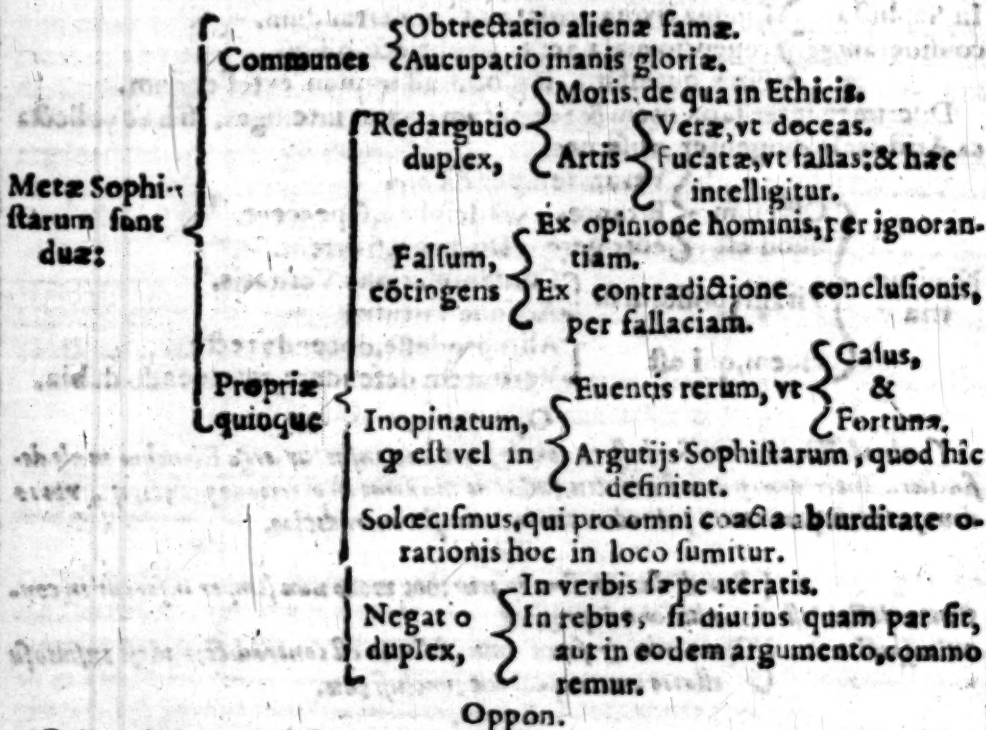 Metæ Sophi-
ſtarum ſunt
duæ:
Communes
Obtrectatio alienæ famæ.
Aucupatio inanis gloriæ.
Propriæ
quinque
Redargutio
duplex,
Moris, de qua in Ethicis.
Artis
Veræ, vt doceas.
Fucatæ, vt fallas: & hæc
intelligitur.
Falſum,
cõtingens
Ex opinione hominis, per ignoran-
tiam.
Ex contradictione concluſionis,
per fallaciam.
Inopinatum,
ꝙ eſt vel in
Euentis rerum, vt
Caſus,
&
Fortuna.
Argutijs Sophiſtarum, quod hic
definitur.
Solœciſmus, qui pro omni coacta abſurditate o-
rationis hoc in loco ſumitur.
Negatio
duplex,
In verbis ſæpe iteratis.
In rebus, ſi diutius quam par ſit,
aut in eodem argumento, commo
remur.
Oppon.